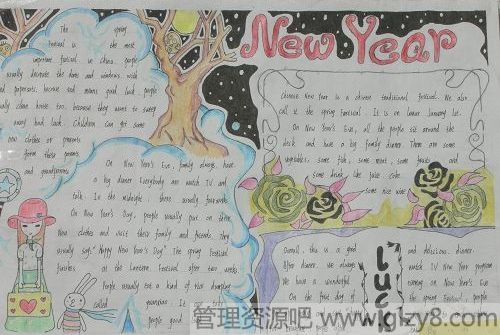 The Spring
Festival is the most
important festival in China. people
usually decorate the doors and windows with
papercuts, because red means good luck. people
usually clean house too, because they want to sweep
away bad luck. Children can get some
new clothes or presents
from their parents
and grandparents
On New Year's Eve, family always have
a big dinner. Everybody are watch TV and
talk. In the midnight, there usually fireworks.
On New Year's Day, people usually put on their
New clothes and visit their family and friends, they
usually say: "Happy New Year's Day." The Spring Festival
finishes at the Lantern Festival after two weeks.
People usually eat a kind of rice dumpling
called yuanxiao. It
people good
New Year
Chinese New Year is a chinese traditional festival. We also
call it the spring festival. It is on lunar January 1st.
On New Year's Eve, all the people sit around the
desk and have a big family dinner. There are some
vegetables, some fish, some meat, some fruits and
some drink like juice coke.
some nice wine
Overall, this is a good and delicious dinner.
After dinner, we always watch TV New Year program
We have a wonderful evening on New Year's Eve
On the first day of the spring Festival, people
Lucky
管理资源吧 www.glzy8.com